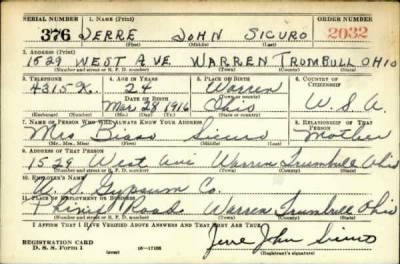 SERIAL NUMBER 1. NAME (Print) ORDER NUMBER
376 JERRE JOHN SICURO 2032
(First) (Middle) (Last)
2. ADDRESS (Print)
1529 WEST AVE WARREN TRUMBULL OHIO
(Number and street or R. F. D. number) (Town) (County) (State)
3. TELEPHONE 4. AGE IN YEARS 5. PLACE OF BIRTH 6. COUNTRY OF CITIZENSHIP
4315X. 24 Warren
DATE OF BIRTH (Town or county)
Mar. 28 1916 Ohio U.S.A.
(Exchange) (Number) (Mo.) (Day) (Yr.) (State or country)
7. NAME OF PERSON WHO WILL ALWAYS KNOW YOUR ADDRESS 8. RELATIONSHIP OF THAT PERSON
Mrs Sicuro Mother
(Mr., Mrs., Miss) (First) (Middle) (Last)
9. ADDRESS OF THAT PERSON
1529 West Ave Warren Trumbull Ohio
(Number and street or R. F. D. number) (Town) (County) (State)
10. EMPLOYER'S NAME
U. S. Gypsum Co.
11. PLACE OF EMPLOYMENT OR BUSINESS
Road Warren Trumbull Ohio
(Number and street or R. F. D. number) (Town) (County) (State)
I AFFIRM THAT I HAVE VERIFIED ABOVE ANSWERS AND THAT THEY ARE TRUE.
REGISTRATION CARD
D. S. S. FORM 1 (over) 16—17105
John Sicuro
(Registrant's signature)